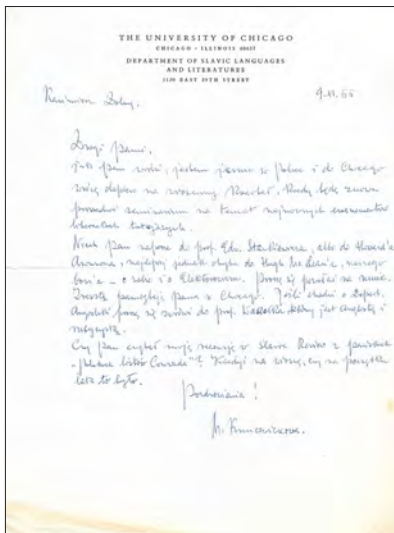 THE UNIVERSITY OF CHICAGO
CHICAGO · ILLINOIS 60637
DEPARTMENT OF SLAVIC LANGUAGES
AND LITERATURES
1130 EAST 59TH STREET
Kazimierz Dolny,
Drogi Panie,
jak Pan widzi, jestem jeszcze w Polsce i do Chicago
wrócę dopiero na wiosenny kwartał. Kiedy będę znowu
prowadzić seminarium na temat najnowszych
tutejszych.
Niech Pan napisze do prof. Edw. Stankiewicza, albo do Howard'a
Aronsona, najlepiej jednak chyba do Hugh McLean'a, naszego
boss'a – o sobie i o Proszę się powołać na mnie.
Zresztą pamiętają Pana w Chicago. Jeśli chodzi o Depart.
Angielski proszę się zwrócić do prof. jest Anglistą i
Czy Pan czytał moją recenzję w Slavic Review z
"Polskich listów Conrada"? Kiedyś na wiosnę, czy na początku
lata to było.
Pozdrowienia!
M. Kuncewiczowa.